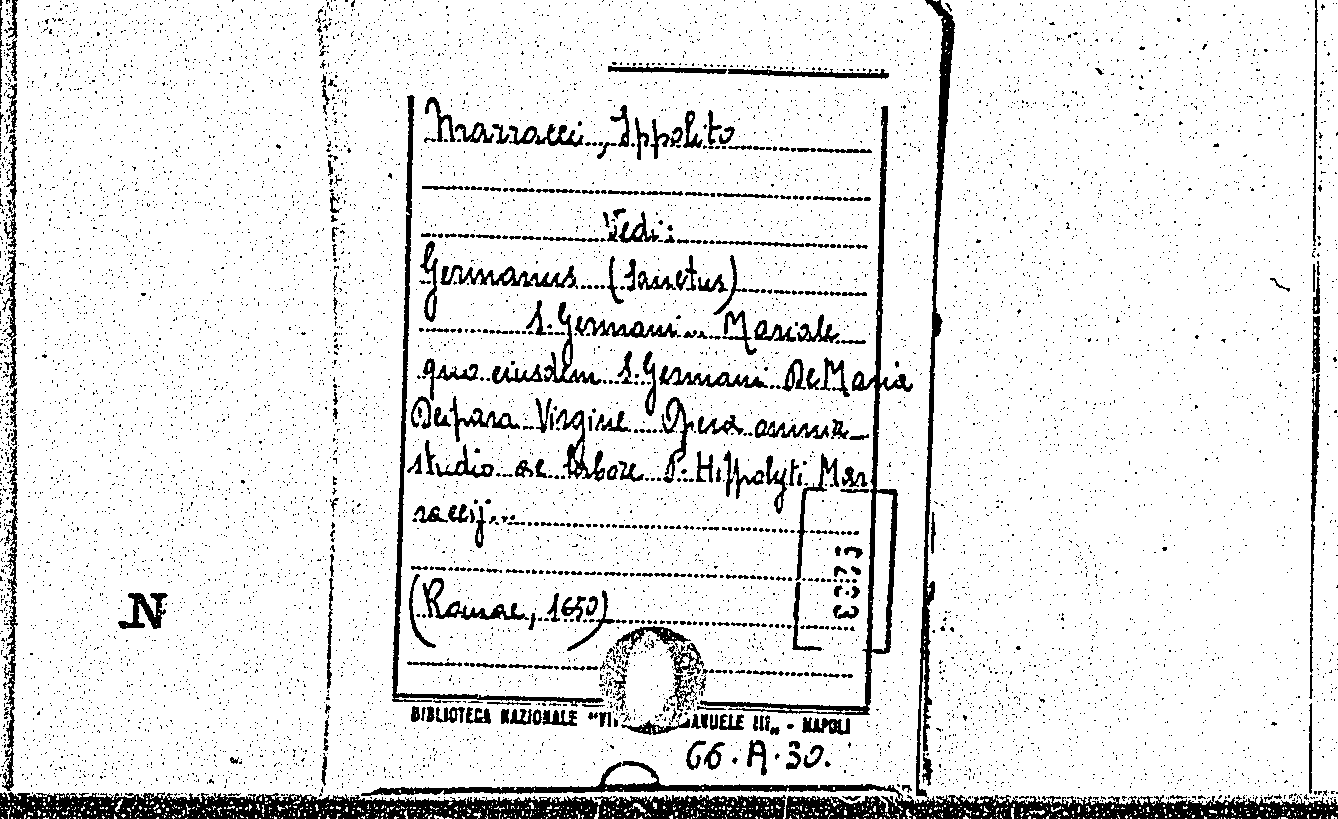 Marracci, Ippolito
Vedi:
Germanus (Sanctus)
S. Germani... Mariale
quo eiusdem S. Germani De Maria
Deipara Virgine Opera omnia
studio ac labore P. Hippolyti Mar
raccij...
(Romae, 1650)
N
BIBLIOTECA NAZIONALE "VI ANUELE III„ - NAPOLI
66.A.30.